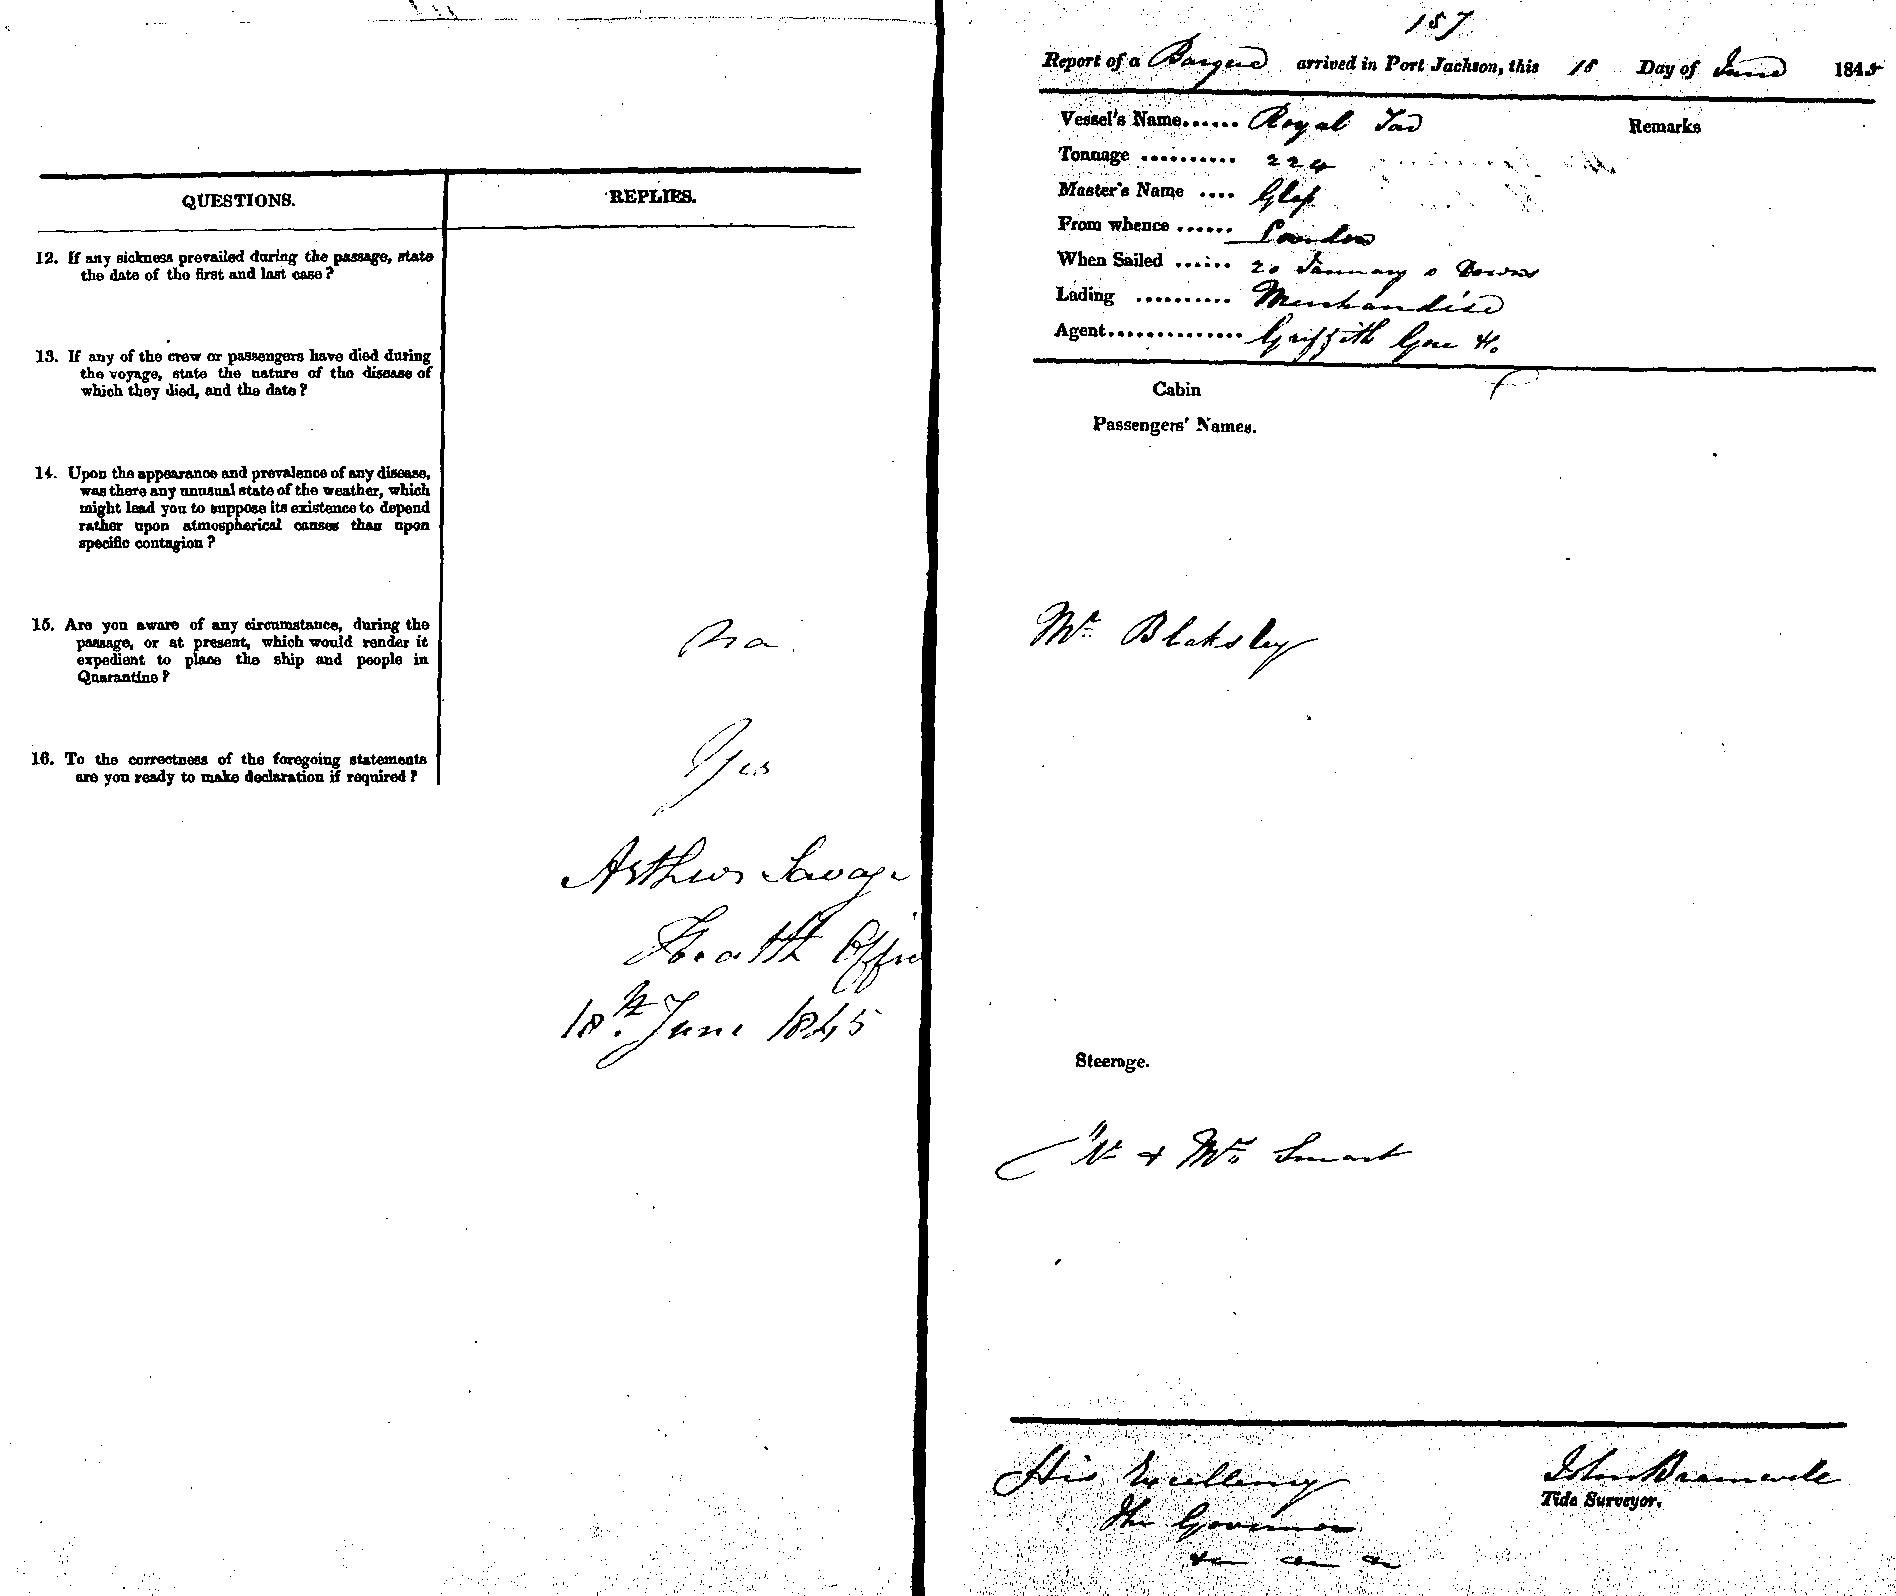 QUESTIONS.
REPLIES.
12. If any sickness prevailed during the passage, state
the date of the first and last case?
13. If any of the crew or passengers have died during
the voyage, state the nature of the disease of
which they died, and the date?
14. Upon the appearance and prevalence of any disease,
was there any unusual state of the weather, which
might lead you to suppose its existence to depend
rather upon atmospherical causes than upon
specific contagion?
15. Are you aware of any circumstance, during the
passage, or at present, which would render it
expedient to place the ship and people in
Quarantine?
No
16. To the correctness of the foregoing statements
are you ready to make declaration if required?
Yes
Arthur Savage
Health Offic
18th June 1845
157
Report of a Barque arrived in Port Jackson, this 18 Day of June 1845
Vessel's Name...... Royal Tar
Remarks
Tonnage .......... 224
Master's Name .... Glass
From whence ...... London
When Sailed ...... 20 January Downs
Lading .......... Merchandise
Agent.............. Griffith Gore & Co
Cabin
Passengers' Names.
Mr Blaksley
Steerage.
Mr & Mrs Smart
His Excellency
The Governor
John Bramwell
Tide Surveyor.